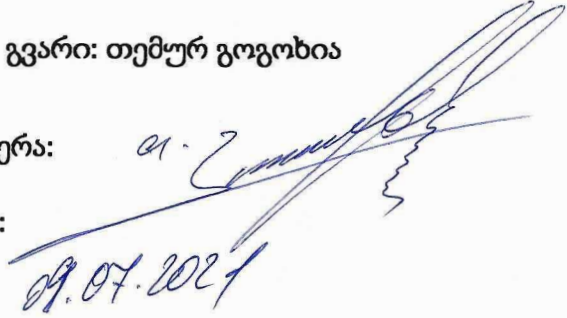 გვარი: თემურ გოგოხია
ერა:
:
09.07.2021